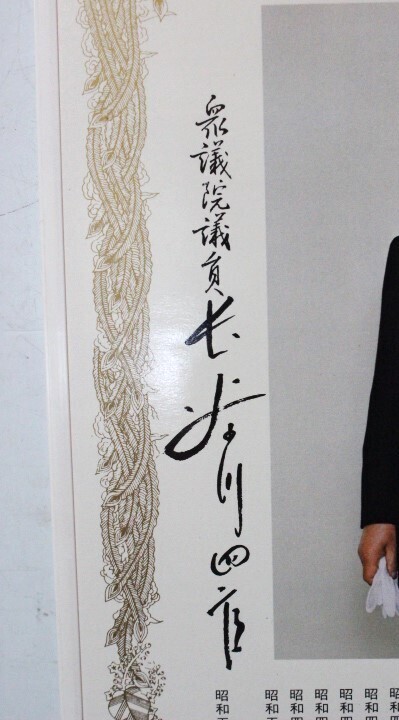 衆議院議員 長谷川四郎
昭和
昭和四
昭和四
昭和四
昭和四
昭和五
昭和五